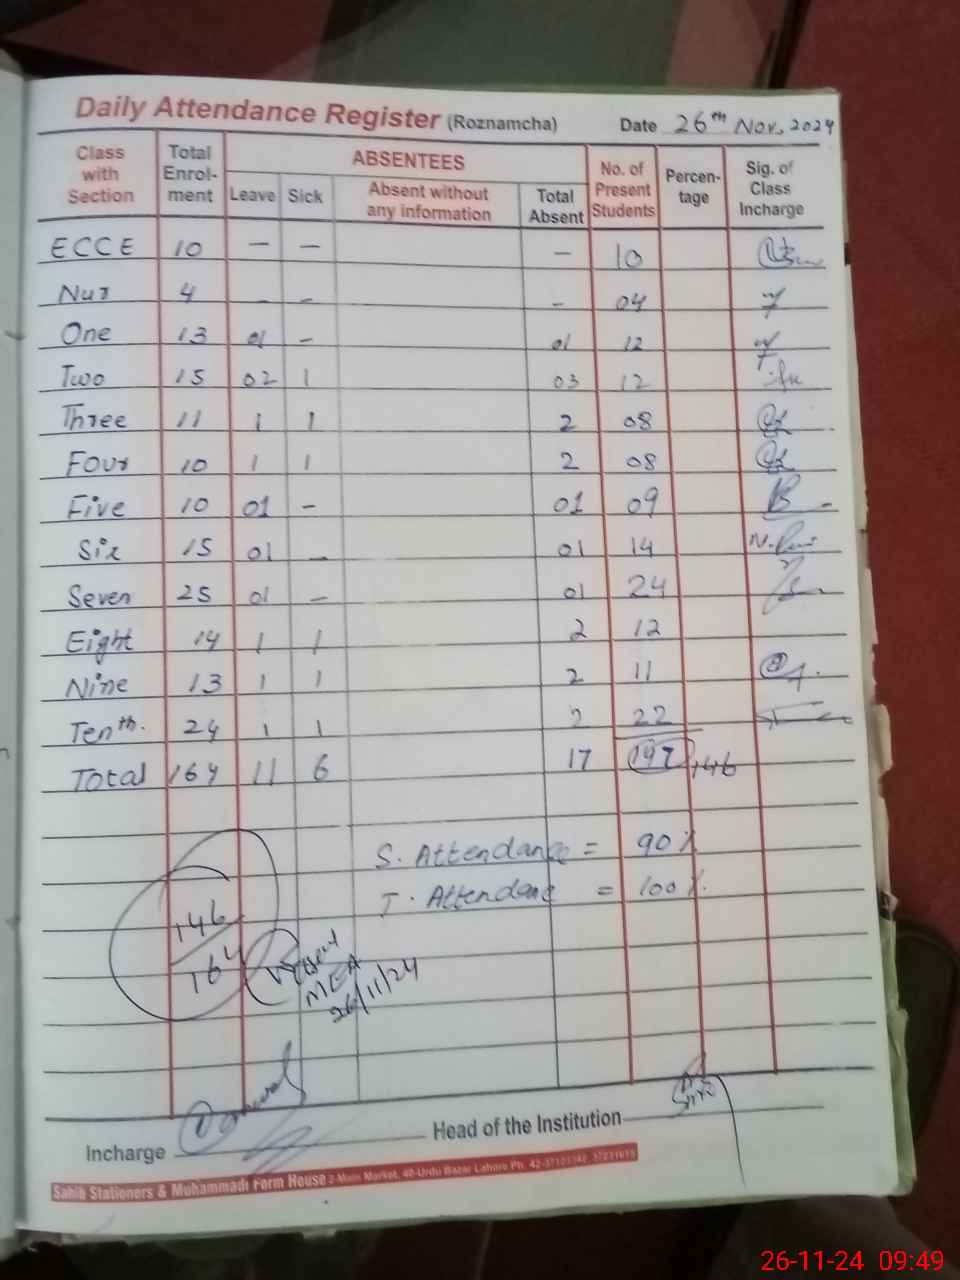 Daily Attendance Register (Roznamcha) Date 26th Nov. 2024
Class with Section Total Enrol-ment ABSENTEES No. of Present Students Percen-tage Sig. of Class Incharge
Leave Sick Absent without any information Total Absent
ECCE 10 - - - 10
Nur 4 - - - 04
One 13 01 - 01 12
Two 15 02 1 03 12
Three 11 1 1 2 08
Four 10 1 1 2 08
Five 10 01 - 01 09
Six 15 01 - 01 14
Seven 25 01 - 01 24
Eight 14 1 1 2 12
Nine 13 1 1 2 11
Tenth. 24 1 1 2 22
Total 164 11 6 17 197 146
S. Attendance = 90%
T. Attendane = 100%.
146
164
MEA
26/11/24
Incharge
Head of the Institution
Sahib Stationers & Muhammadi Form House 2-Main Market, 40-Urdu Bazar Lahore Ph. 42-
26-11-24 09:49